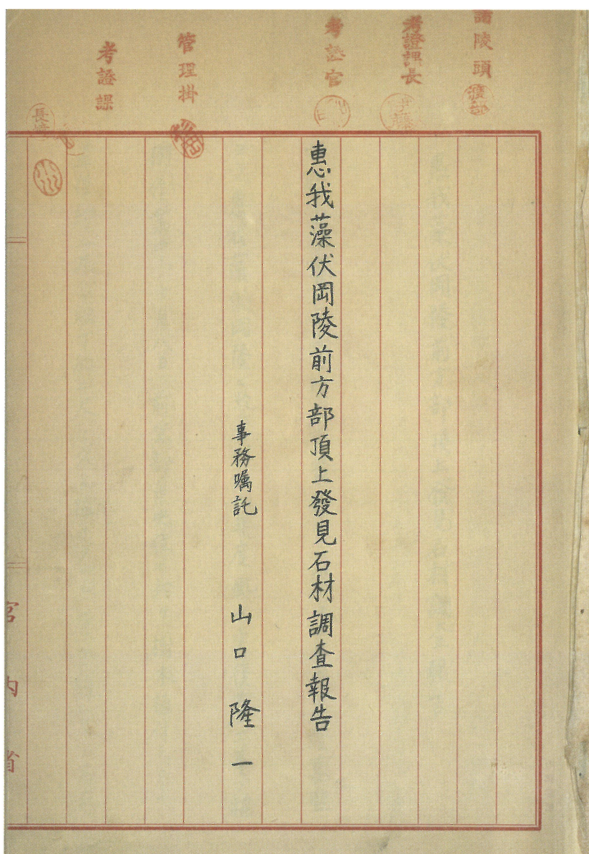 諸陵頭
考證課長
考證官
管理掛
考證課
惠我藻伏岡陵前方部頂上發見石材調査報告
事務嘱託 山口隆一
宮内省